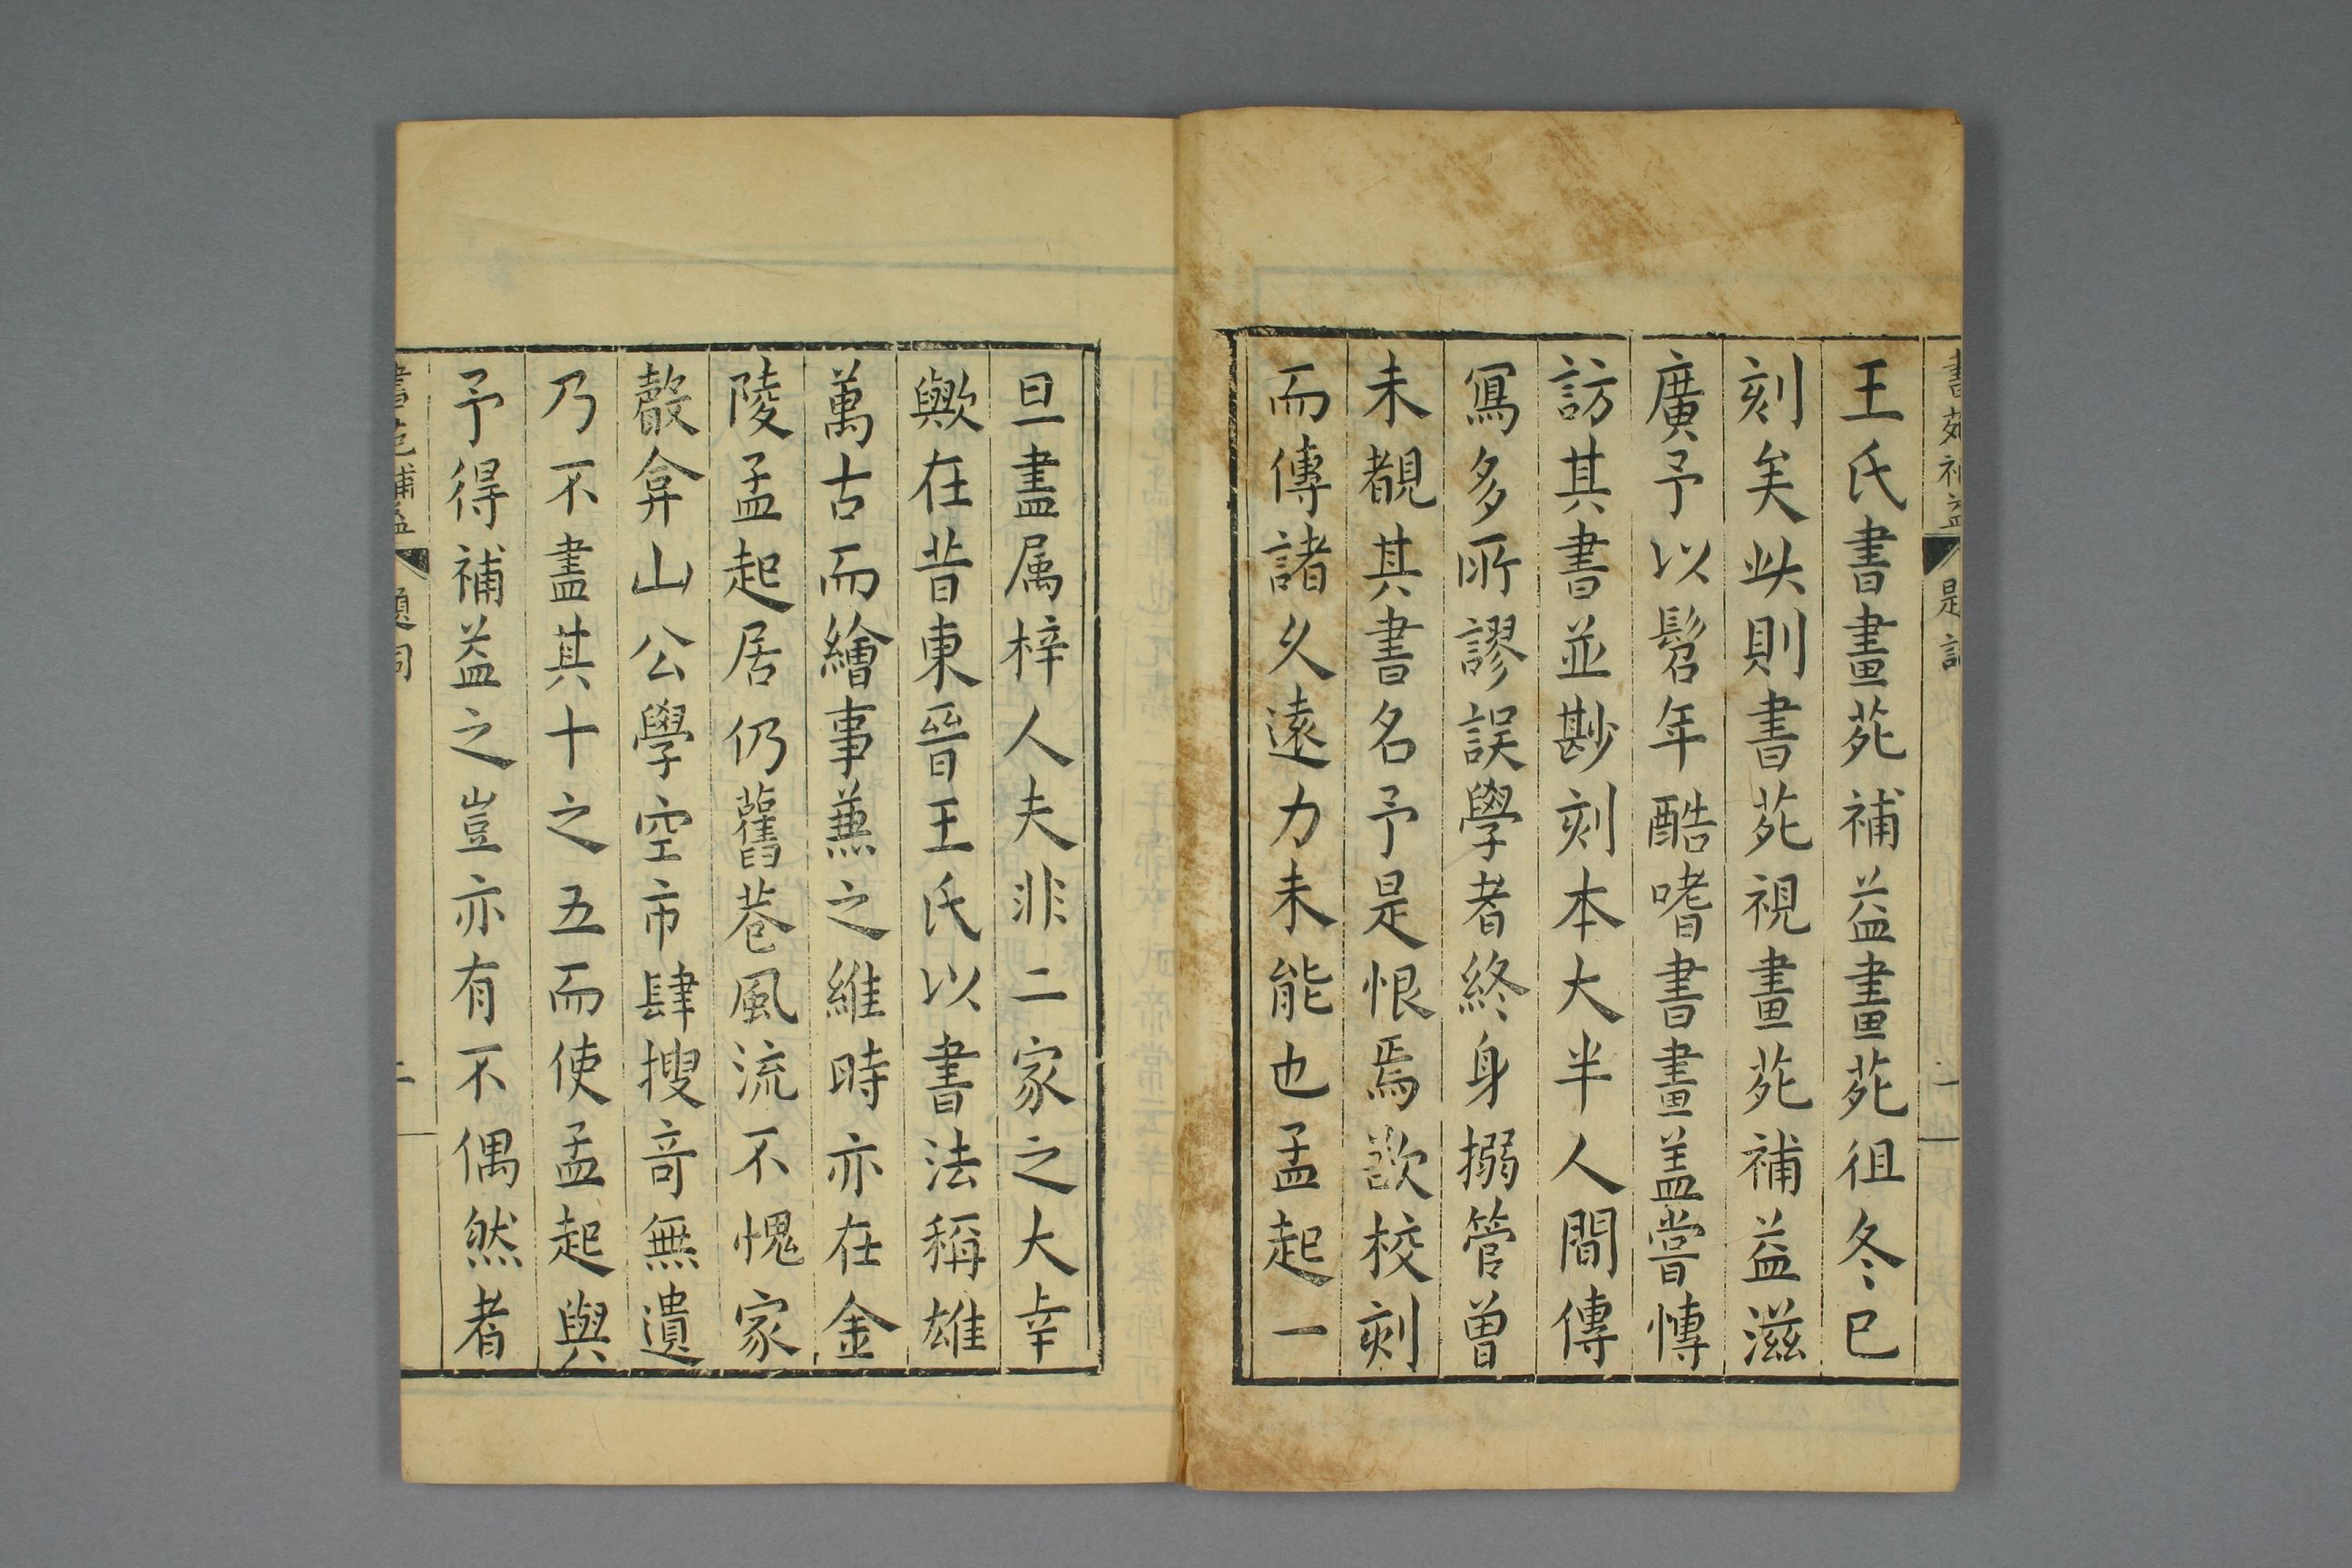 王氏書畫苑補益畫苑徂冬已
刻矣此則書苑視畫苑補益滋
廣予以髫年酷嗜書畫盖嘗愽
訪其書並尠刻本大半人間傳
寫多所謬誤學者終身搦管曾
未覩其書名予是恨焉欲校刻
而傳諸久遠力未能也孟起一
旦盡属梓人夫非二家之大幸
歟在昔東晉王氏以書法稱雄
萬古而繪事蕪之維時亦在金
陵孟起居仍舊巷風流不愧家
聲弇山公學空市肆搜竒無遺
乃不盡其十之五而使孟起與
予得補益之豈亦有不偶然者
書苑補益 題詞 二